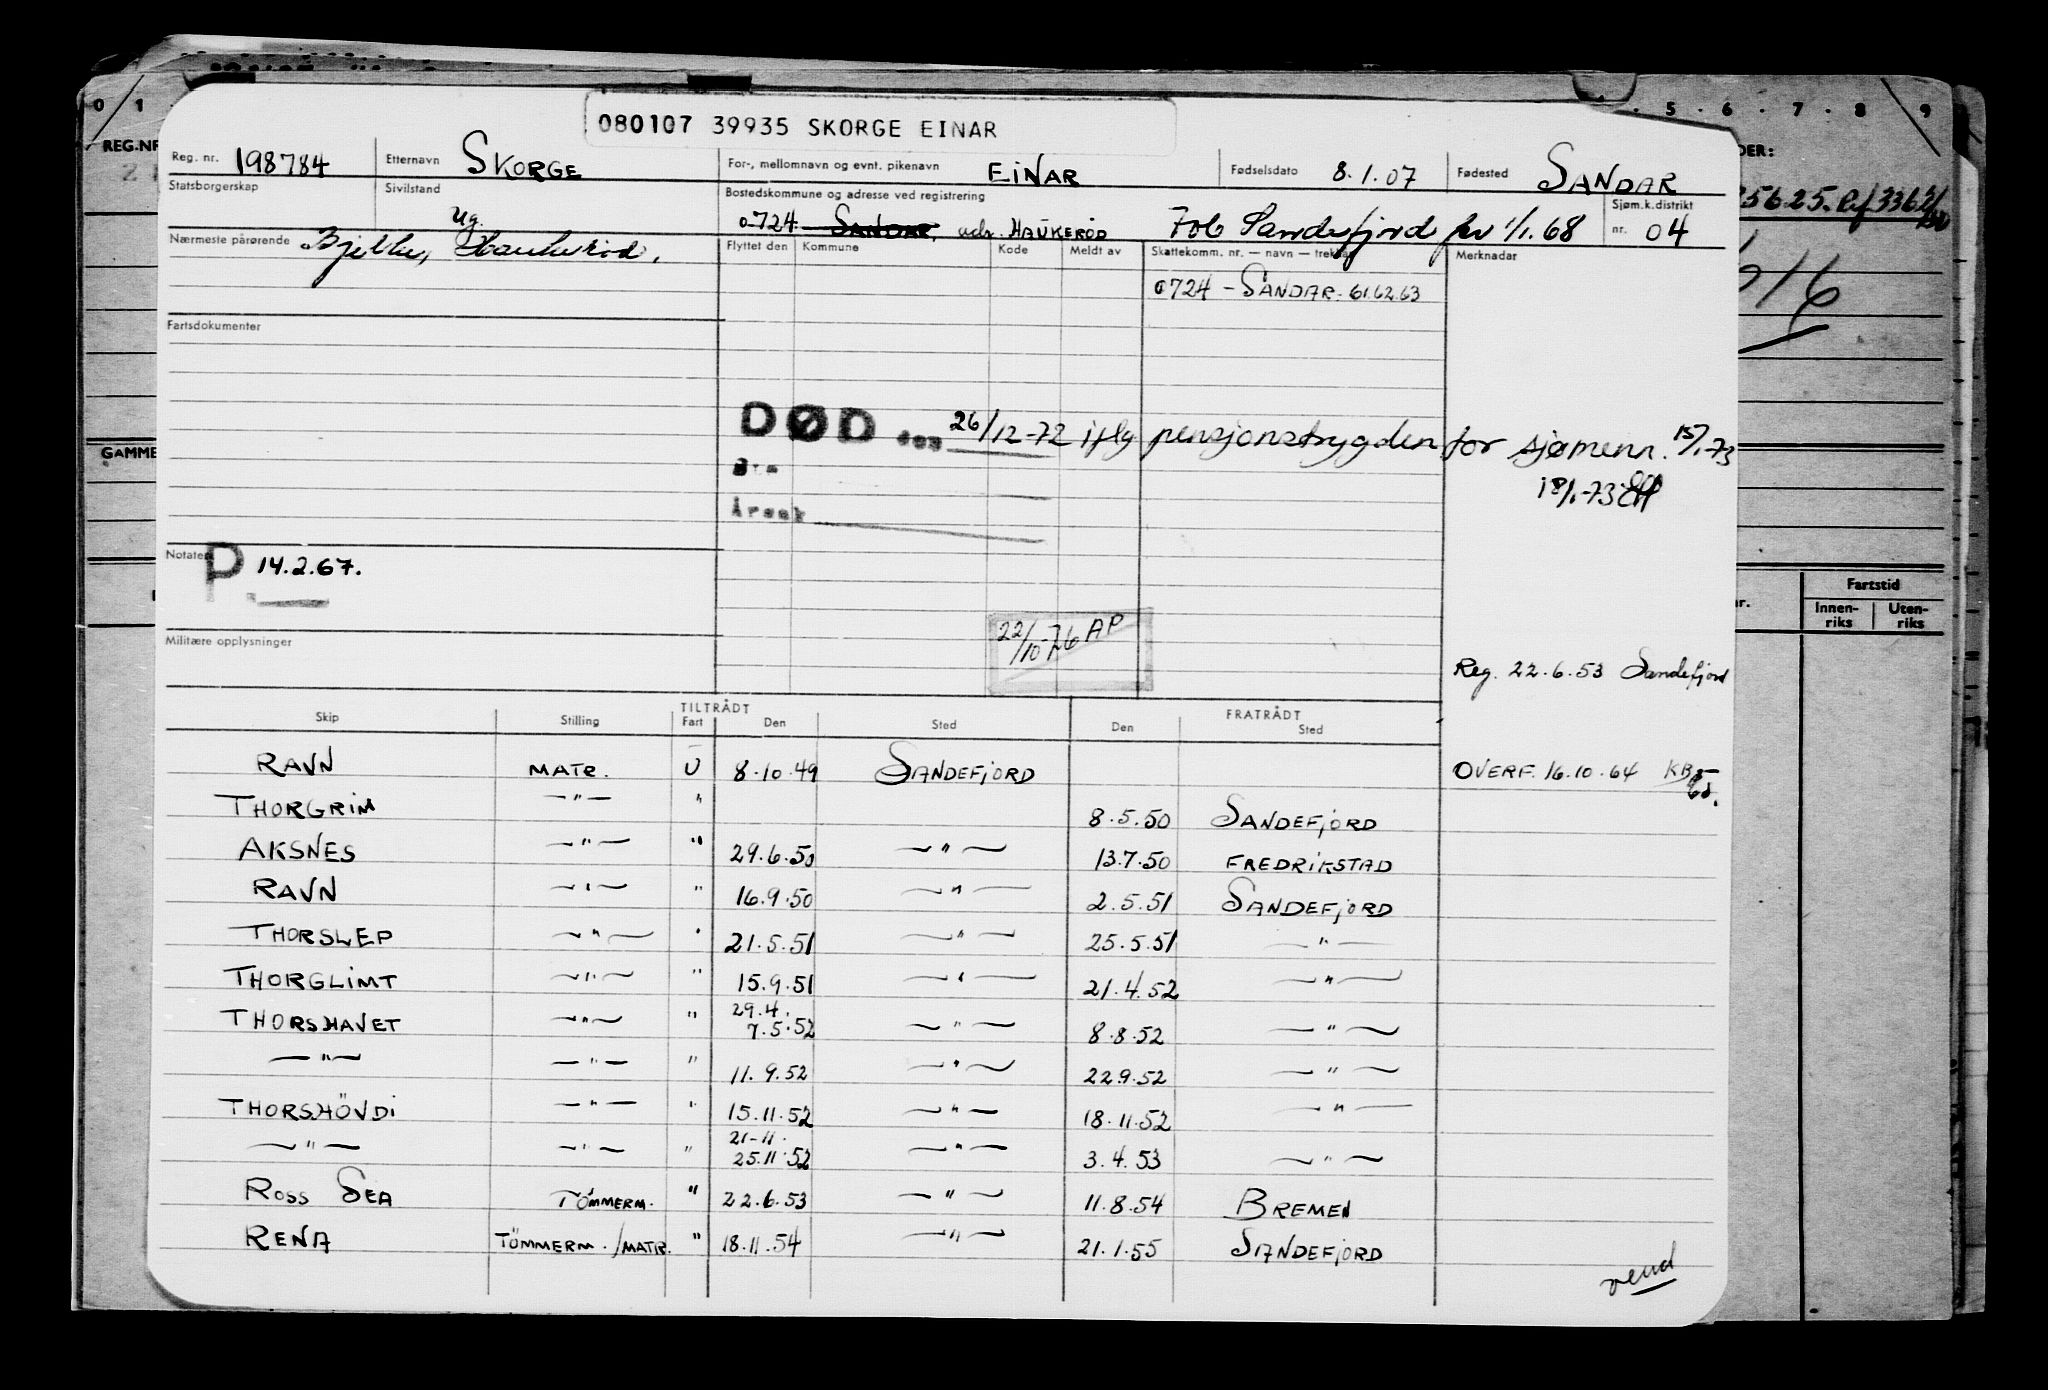 080107 39935 SKORGE EINAR
Reg. nr. 198784 Etternavn SKORGE For-, mellomnavn og evnt. pikenavn EINAR Fødselsdato 8.1.07 Fødested SANDAR
Statsborgerskap Sivilstand Ug. Bostedskommune og adresse ved registrering Sjøm.k.distrikt
0724 SANDAR, adr. HAUKERØD 706 Sandefjord fra 1/1.68 nr. 04
Nærmeste pårørende Flyttet den Kommune Kode Meldt av Skattekomm. nr. — navn — Merknadar
Haukerød.
0724 - SANDAR. 61.62.63
Fartsdokumenter
DØD den 26/12-72 iflg pensjonstrygden for sjømenn. 15/1-73
18/1-73
Årsak
Notater P 14.2.67.
22/10-76 AP
Militære opplysninger
Reg. 22.6.53 Sandefjord
TILTRÅDT FRATRÅDT
Skip Stilling Fart Den Sted Den Sted
RAVN MATR. U 8.10.49 SANDEFJORD OVERF. 16.10.64
THORGRIM —"— " 8.5.50 SANDEFJORD
AKSNES —"— " 29.6.50 —"— 13.7.50 FREDRIKSTAD
RAVN —"— " 16.9.50 —"— 2.5.51 SANDEFJORD
THORSLEP —"— " 21.5.51 —"— 25.5.51 —"—
THORGLIMT —"— " 15.9.51 —"— 21.4.52 —"—
THORSHAVET —"— " 29.4. 7.5.52 —"— 8.8.52 —"—
—"— —"— " 11.9.52 —"— 22.9.52 —"—
THORSHÖVDI —"— " 15.11.52 —"— 18.11.52 —"—
—"— —"— " 21-11. 25.11.52 —"— 3.4.53 —"—
ROSS SEA TÖMMERM. " 22.6.53 —"— 11.8.54 BREMEN
RENA TÖMMERM./MATR. " 18.11.54 —"— 21.1.55 SANDEFJORD
vend
0 1
5 · 6 · 7 · 8 9
REG.NR
GAMME
Fartstid
Innen-riks Uten-riks